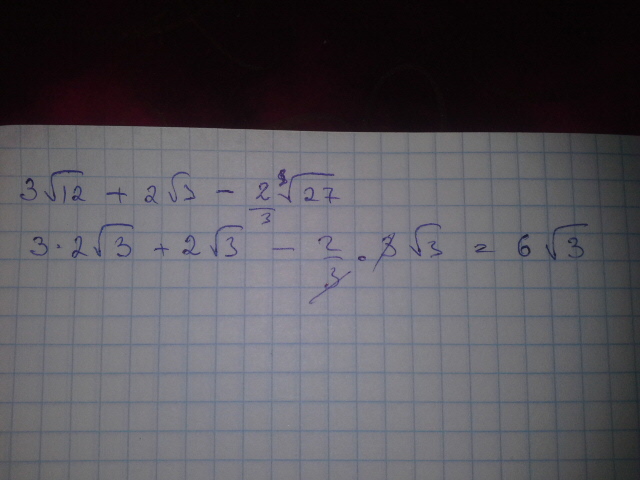 3√12 + 2√3 − 2/3 √27
3·2√3 + 2√3 − 2/3 · 3√3 = 6√3